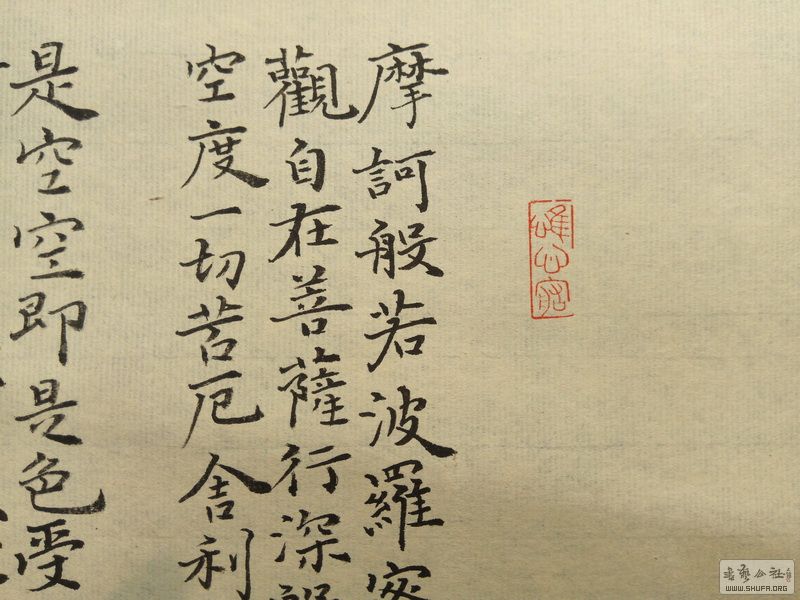 摩訶般若波羅密
觀自在菩薩行深般
空度一切苦厄舍利
是空空即是色受
WWW.SHUFA.ORG